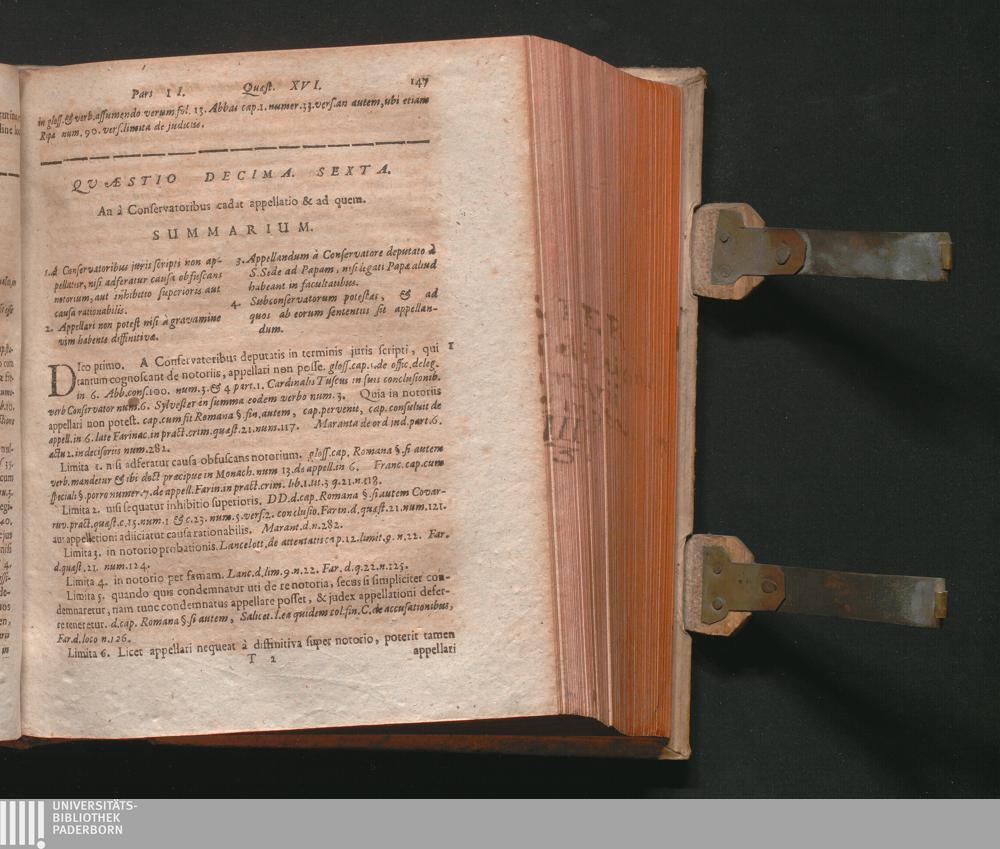 Pars II. Quæst. XVI. 147
in gloss. & verb. assumendo verum fol. 13. Abbas cap. 1. numer. 33. vers. an autem, ubi etiam
Ripa num. 90. vers. limita de judiciis.
QVÆSTIO DECIMA. SEXTA.
An à Conservatoribus cadat appellatio & ad quem.
SUMMARIUM.
1. à Conservatoribus juris scripti non ap-
pellatur, nisi adferatur causa obfuscans
notorium, aut inhibitio superioris aut
causa rationabilis.
2. Appellari non potest nisi à gravamine
vim habente diffinitivæ.
3. Appellandum à Conservatore deputato à
S. Sede ad Papam, nisi legati Papæ aliud
habeant in facultatibus.
4. Subconservatorum potestas, & ad
quos ab eorum sententiis sit appellan-
dum.
DIco primo. A Conservatoribus deputatis in terminis juris scripti, qui 1
tantum cognoscant de notoriis, appellari non posse. gloss. cap. 1. de offic. deleg.
in 6. Abb. cons. 100. num. 3. & 4 part. 1. Cardinalis Tuscus in suis conclusionib.
verb Conservator num. 6. Sylvester in summa eodem verbo num. 3. Quia in notoriis
appellari non potest. cap. cum sit Romana §. fin. autem, cap. pervenit, cap. consuluit de
appell. in 6. late Farinac. in pract. crim. quæst. 21. num. 117. Maranta de ord jud. part. 6.
actu 2. in decisoriis num. 282.
Limita 1. nisi adferatur causa obfuscans notorium. gloss. cap. Romana §. si autem
verb. mandetur & ibi doct præcipue in Monach. num 13. de appell. in 6. Franc. cap. cum
speciali §. porro numer. 7. de appell. Farin. in pract. crim. lib. 1. tit. 3 q. 21. n. 118.
Limita 2. nisi sequatur inhibitio superioris. DD. d. cap. Romana §. si autem Covar-
ruv. pract. quæst. c. 15. num. 1 & c. 23. num. 5. vers. 2. conclusio. Farin. d. quæst. 21. num. 121.
aut appellationi adiiciatur causa rationabilis. Marant. d. n. 282.
Limita 3. in notorio probationis. Lancelott. de attentatis cap. 12. limit. 9. n. 22. Far.
d. quæst. 21. num. 124.
Limita 4. in notorio per famam. Lanc. d. lim. 9. n. 22. Far. d. q. 22. n. 125.
Limita 5. quando quis condemnatur uti de re notoria, secus si simpliciter con-
demnaretur, nam tunc condemnatus appellare posset, & judex appellationi defer-
re teneretur. d. cap. Romana §. si autem, Salicet. l. ea quidem col. fin. C. de accusationibus,
Far. d. loco n. 126.
Limita 6. Licet appellari nequeat à diffinitiva super notorio, poterit tamen
T 2 appellari
UNIVERSITÄTS-
BIBLIOTHEK
PADERBORN